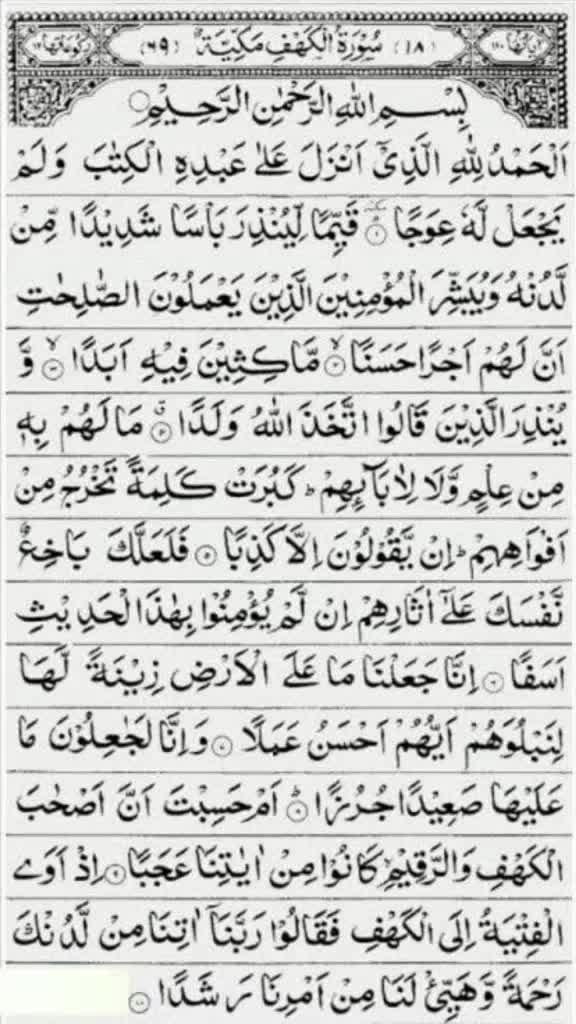 اٰيَاتُهَا ١١٠ (١٨) سُوْرَةُ الْكَهْفِ مَكِّيَّةٌ (٦٩) رُكُوْعَاتُهَا ١٢
بِسْمِ اللهِ الرَّحْمٰنِ الرَّحِيْمِ
اَلْحَمْدُ لِلّٰهِ الَّذِىْٓ اَنْزَلَ عَلٰى عَبْدِهِ الْكِتٰبَ وَلَمْ
يَجْعَلْ لَّهٗ عِوَجًا ۝١ قَيِّمًا لِّيُنْذِرَ بَاْسًا شَدِيْدًا مِّنْ
لَّدُنْهُ وَيُبَشِّرَ الْمُؤْمِنِيْنَ الَّذِيْنَ يَعْمَلُوْنَ الصّٰلِحٰتِ
اَنَّ لَهُمْ اَجْرًا حَسَنًا ۙ۝٢ مَّاكِثِيْنَ فِيْهِ اَبَدًا ۙ۝٣ وَّ
يُنْذِرَ الَّذِيْنَ قَالُوا اتَّخَذَ اللهُ وَلَدًا ۝٤ مَا لَهُمْ بِهٖ
مِنْ عِلْمٍ وَّلَا لِاٰبَآئِهِمْ ؕ كَبُرَتْ كَلِمَةً تَخْرُجُ مِنْ
اَفْوَاهِهِمْ ؕ اِنْ يَّقُوْلُوْنَ اِلَّا كَذِبًا ۝٥ فَلَعَلَّكَ بَاخِعٌ
نَّفْسَكَ عَلٰٓى اٰثَارِهِمْ اِنْ لَّمْ يُؤْمِنُوْا بِهٰذَا الْحَدِيْثِ
اَسَفًا ۝٦ اِنَّا جَعَلْنَا مَا عَلَى الْاَرْضِ زِيْنَةً لَّهَا
لِنَبْلُوَهُمْ اَيُّهُمْ اَحْسَنُ عَمَلًا ۝٧ وَاِنَّا لَجٰعِلُوْنَ مَا
عَلَيْهَا صَعِيْدًا جُرُزًا ؕ۝٨ اَمْ حَسِبْتَ اَنَّ اَصْحٰبَ
الْكَهْفِ وَالرَّقِيْمِ كَانُوْا مِنْ اٰيٰتِنَا عَجَبًا ۝٩ اِذْ اَوَى
الْفِتْيَةُ اِلَى الْكَهْفِ فَقَالُوْا رَبَّنَآ اٰتِنَا مِنْ لَّدُنْكَ
رَحْمَةً وَّهَيِّئْ لَنَا مِنْ اَمْرِنَا رَشَدًا ۝١٠